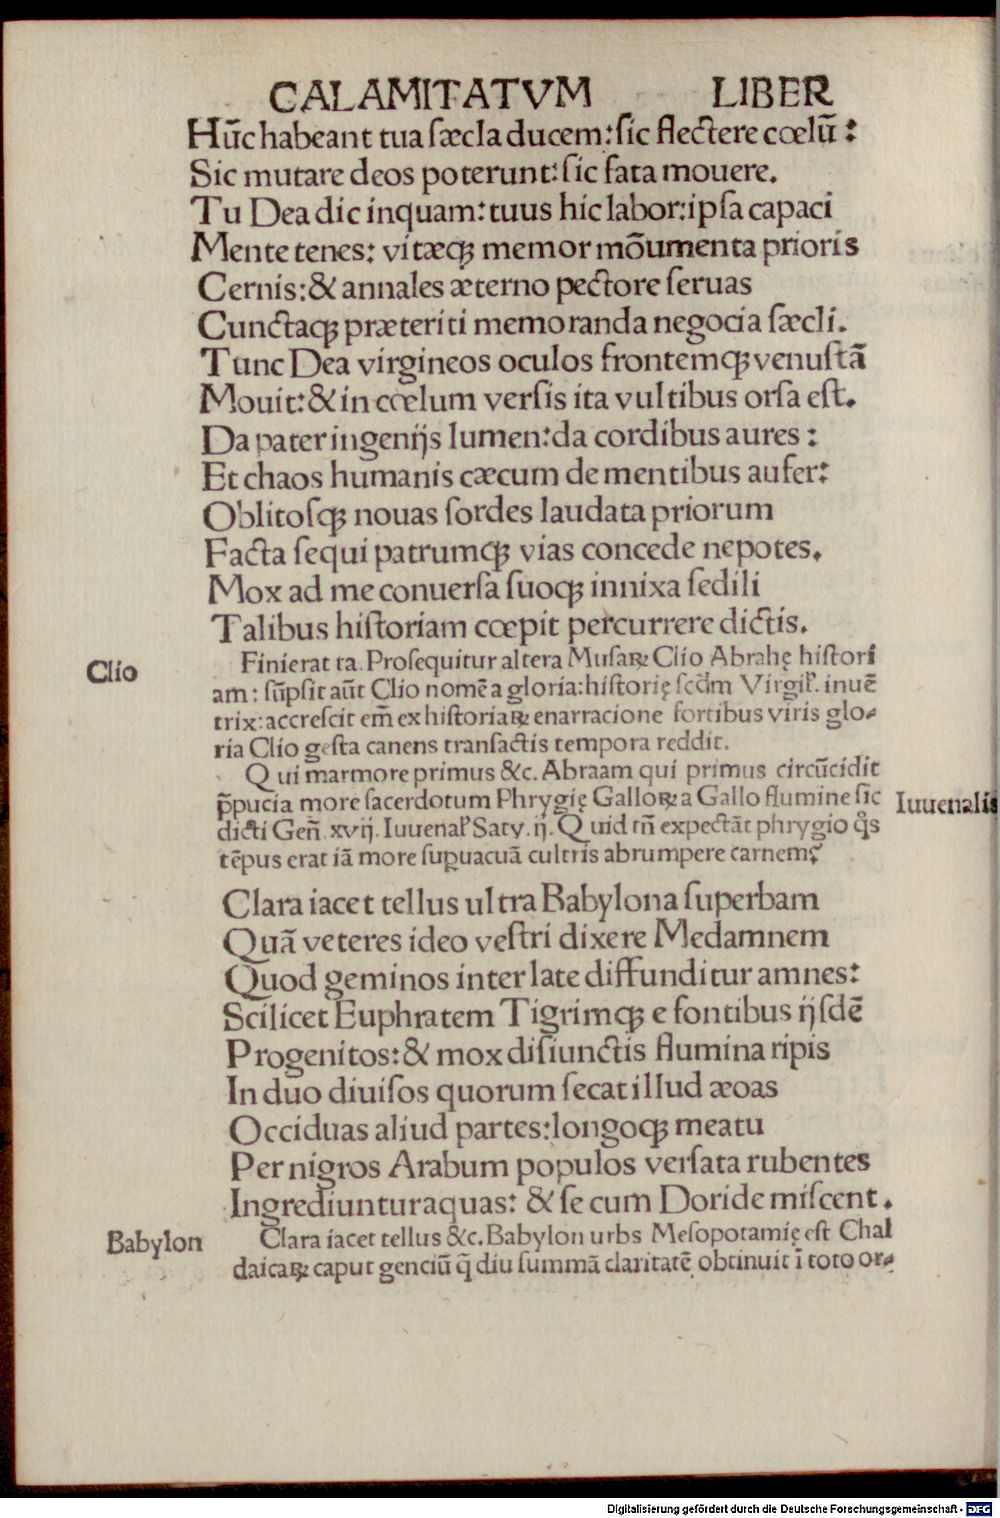 CALAMITATVM LIBER
Hūc habeant tua sæcla ducem: sic flectere cœlū:
Sic mutare deos poterunt: sic fata mouere.
Tu Dea dic inquam: tuus hic labor: ipsa capaci
Mente tenes: vitæqꝫ memor mōumenta prioris
Cernis: & annales æterno pectore seruas
Cunctaqꝫ præteriti memoranda negocia sæcli.
Tunc Dea virgineos oculos frontemqꝫ venustā
Mouit: & in cœlum versis ita vultibus orsa est.
Da pater ingenijs lumen: da cordibus aures:
Et chaos humanis cæcum de mentibus aufer:
Oblitosqꝫ nouas sordes laudata priorum
Facta sequi patrumqꝫ vias concede nepotes.
Mox ad me conuersa suoqꝫ innixa sedili
Talibus historiam cœpit percurrere dictis.
Clio
Finierat ta. Prosequitur altera Musaꝝ Clio Abrahę histori
am: sūpsit aūt Clio nomē a gloria: historię scd̄m Virgil̛. inuē
trix: accrescit em̄ ex historiaꝝ enarracione fortibus viris glo-
ria Clio gesta canens transactis tempora reddit.
Qui marmore primus &c. Abraam qui primus circūcidit
p̄pucia more sacerdotum Phrygię Galloꝝ a Gallo flumine sic
Iuuenalis
dicti Gen̄. xvij. Iuuenal̛ Saty. ij. Quid tn̄ expectāt phrygio qͦs
tēpus erat iā more suꝑuacuā cultris abrumpere carnem?
Clara iacet tellus ultra Babylona superbam
Quā veteres ideo vestri dixere Medamnem
Quod geminos inter late diffunditur amnes:
Scilicet Euphratem Tigrimqꝫ e fontibus ijsdē
Progenitos: & mox disiunctis flumina ripis
In duo diuisos quorum secat illud æoas
Occiduas aliud partes: longoqꝫ meatu
Per nigros Arabum populos versata rubentes
Ingrediuntur aquas: & se cum Doride miscent.
Babylon
Clara iacet tellus &c. Babylon urbs Mesopotamię est Chal
daicaꝝ caput genciū q̄ diu summā claritatē obtinuit ī toto or-
Digitalisierung gefördert durch die Deutsche Forschungsgemeinschaft - DFG